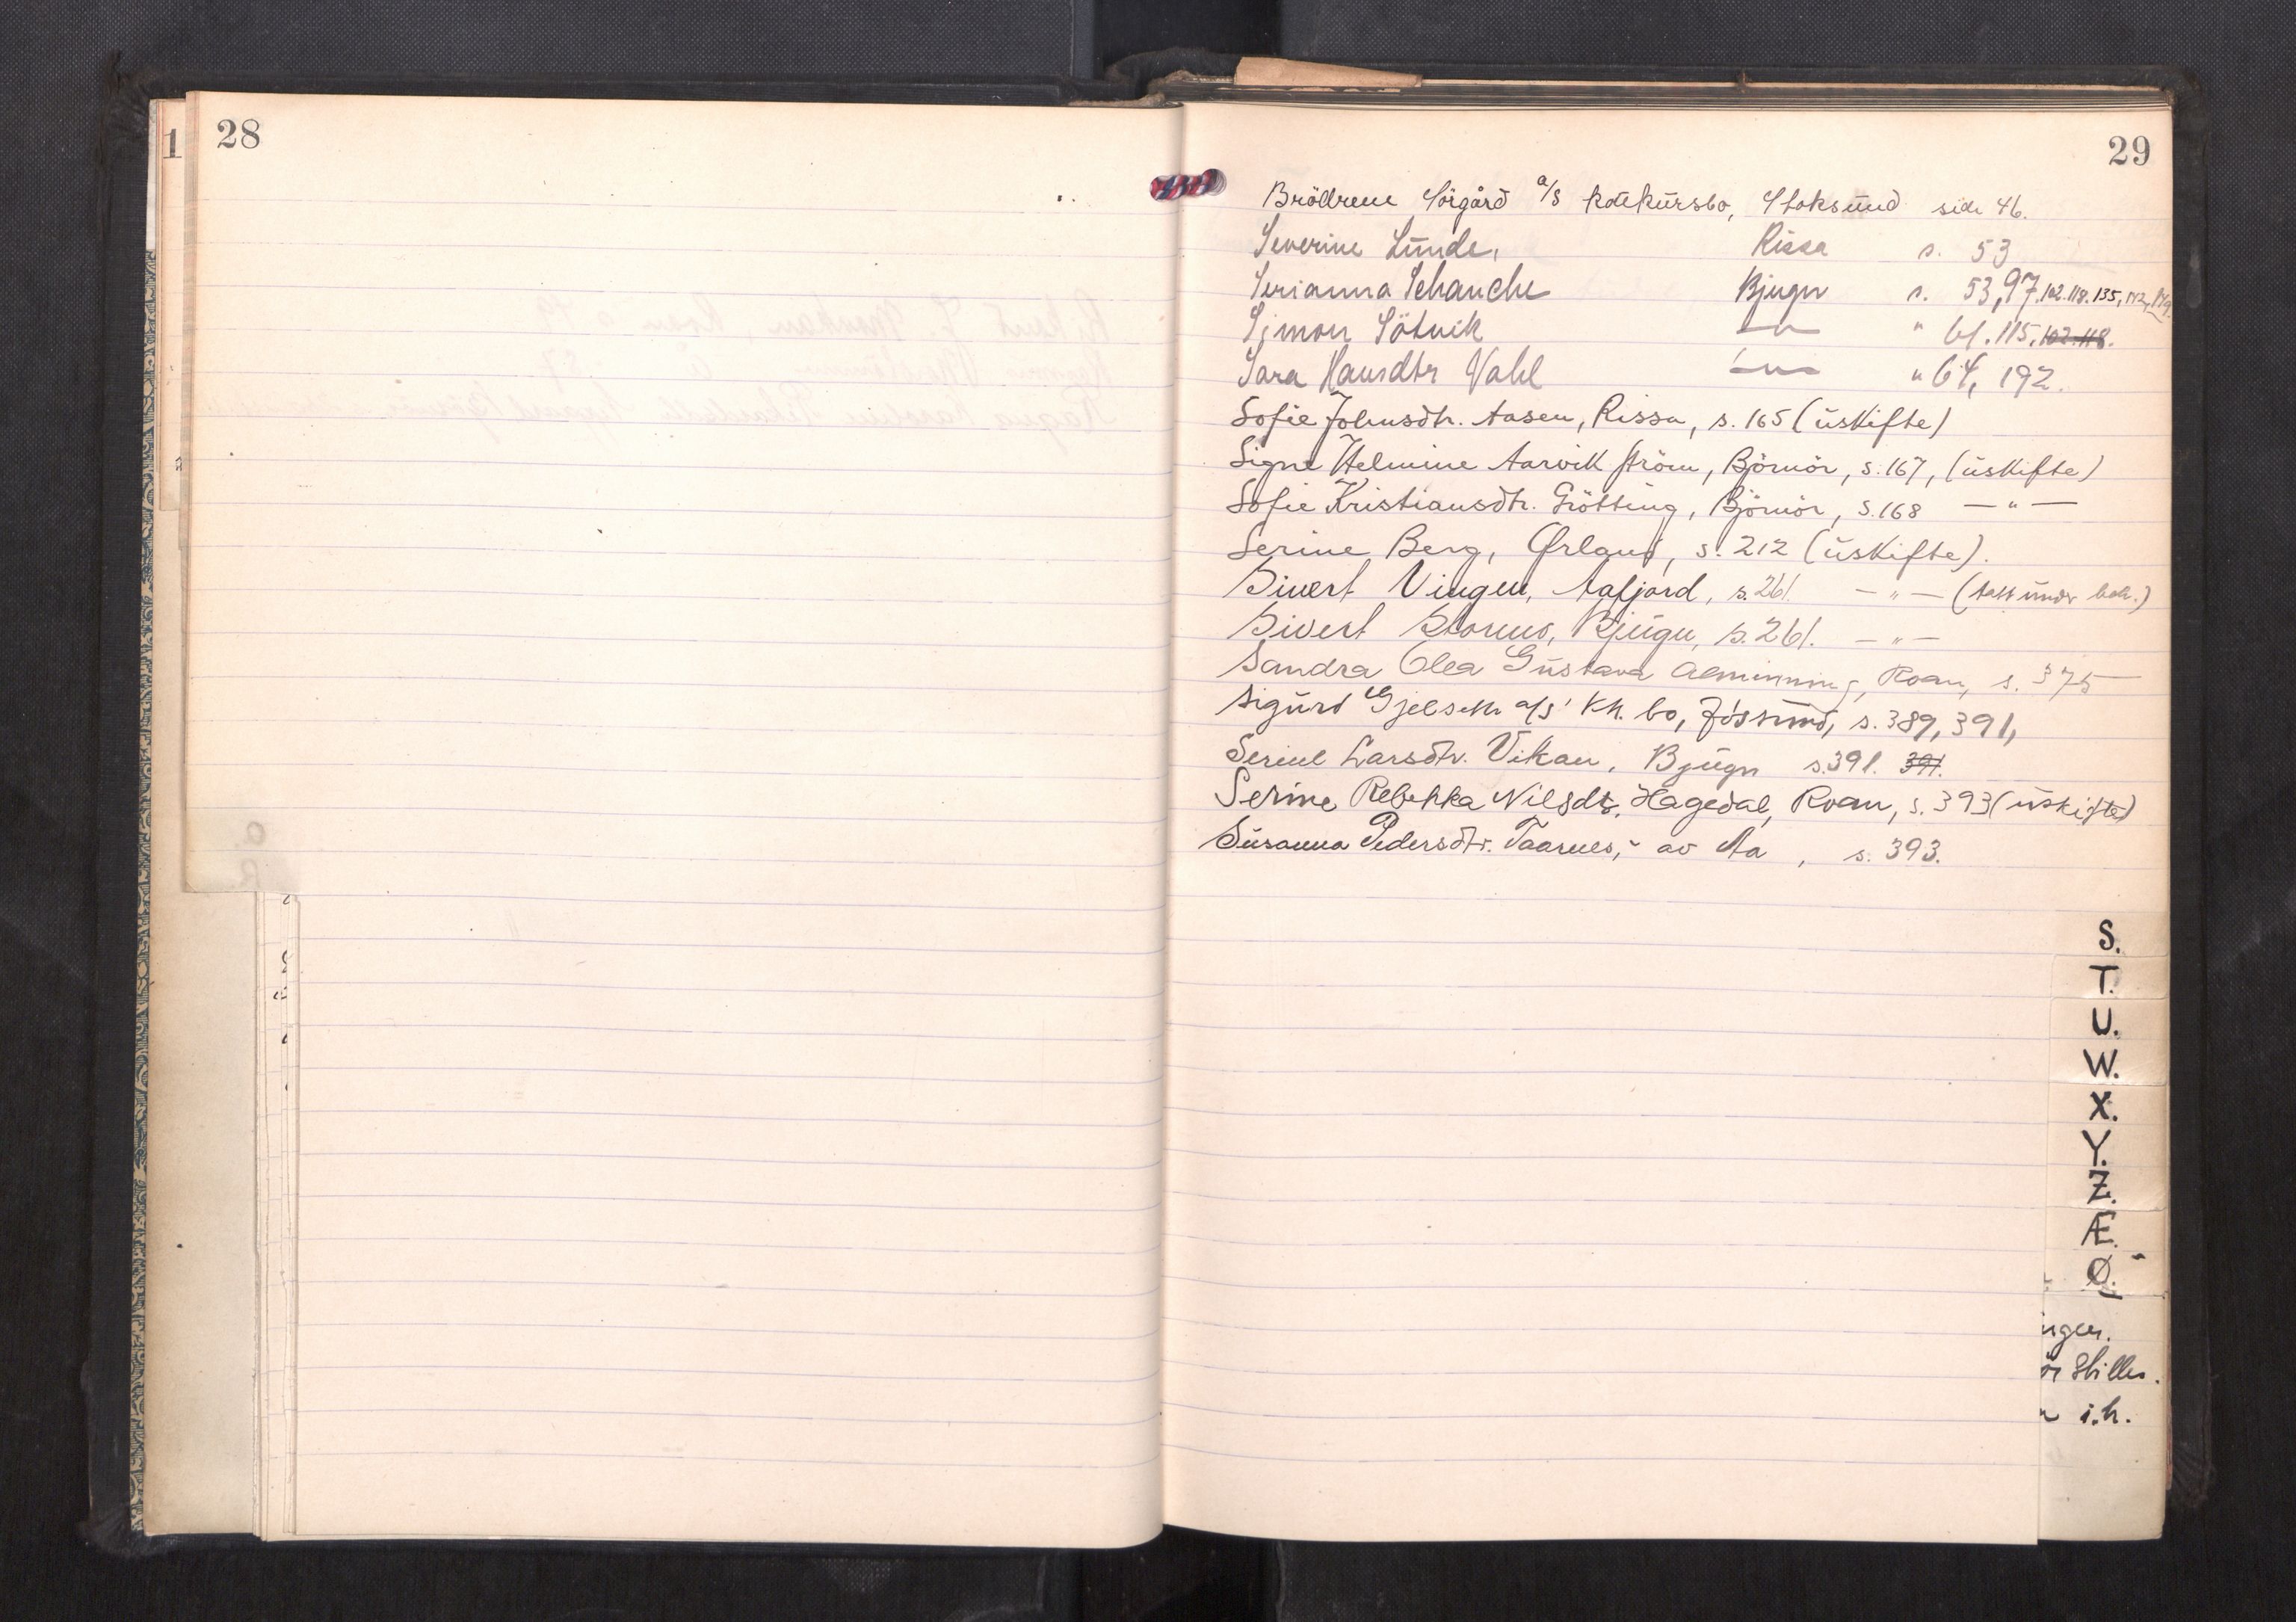 28
1
29
Brödrene Sörgård a/s konkursbo, Stoksund side 46.
Severine Lunde, Rissa s. 53
Serianna Schanche Bjugn s. 53, 97, 102. 118. 135,
Simon Sötvik —"— " 61. 115. 102. 118.
Sara Hansdtr Vahl —"— " 64, 192.
Sofie Johnsdtr. Aasen, Rissa, s. 165 (uskifte)
Signe Helmine Aarvik Ström, Björnör, s. 167, (uskifte)
Sofie Kristiansdtr. Grötting, Björnör, s. 168 — " —
Serine Berg, Ørland, s. 212 (uskifte).
Sivert Vingen, Aafjord, s. 261. — " — (
Sivert Stornes, Bjugn, s. 261. — " —
Sandra Olea Gustava Alminning, Roan, s. 375
Sigurd Gjelseth a/s' kk. bo, Jössund, s. 389, 391,
Serine Larsdtr. Vikan, Bjugn s. 391. 391.
Serine Rebekka Nilsdtr. Hagedal, Roan, s. 393 (uskifte)
Susanna Pedersdtr. Taarnes, - av Aa, s. 393.
S.
T.
U.
W.
X.
Y.
Z.
Æ.
Ø.
i.h.